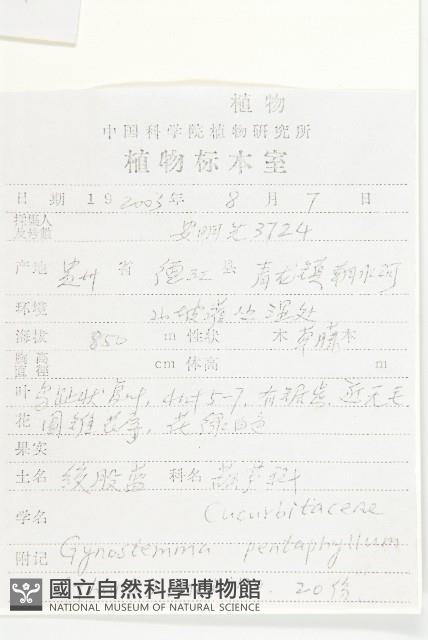 植物
中国科学院植物研究所
植物标本室
日 期 19 2003年 8 月 7 日
采集人及号数 安明先 3724
产地 贵州 省 德江 县 青龙镇朝水河
环境 山坡灌丛湿处
海拔 850 m 性状 木 草藤本
胸高直径 cm 体高 m
叶 鸟趾状复叶, 小叶5-7, 有锯齿, 近无毛
花 圆锥花序, 花绿白色
果实
土名 绞股蓝 科名 葫芦科
学名 Cucurbitaceae
附记 Gynostemma pentaphyllum
20份
國立自然科學博物館
NATIONAL MUSEUM OF NATURAL SCIENCE